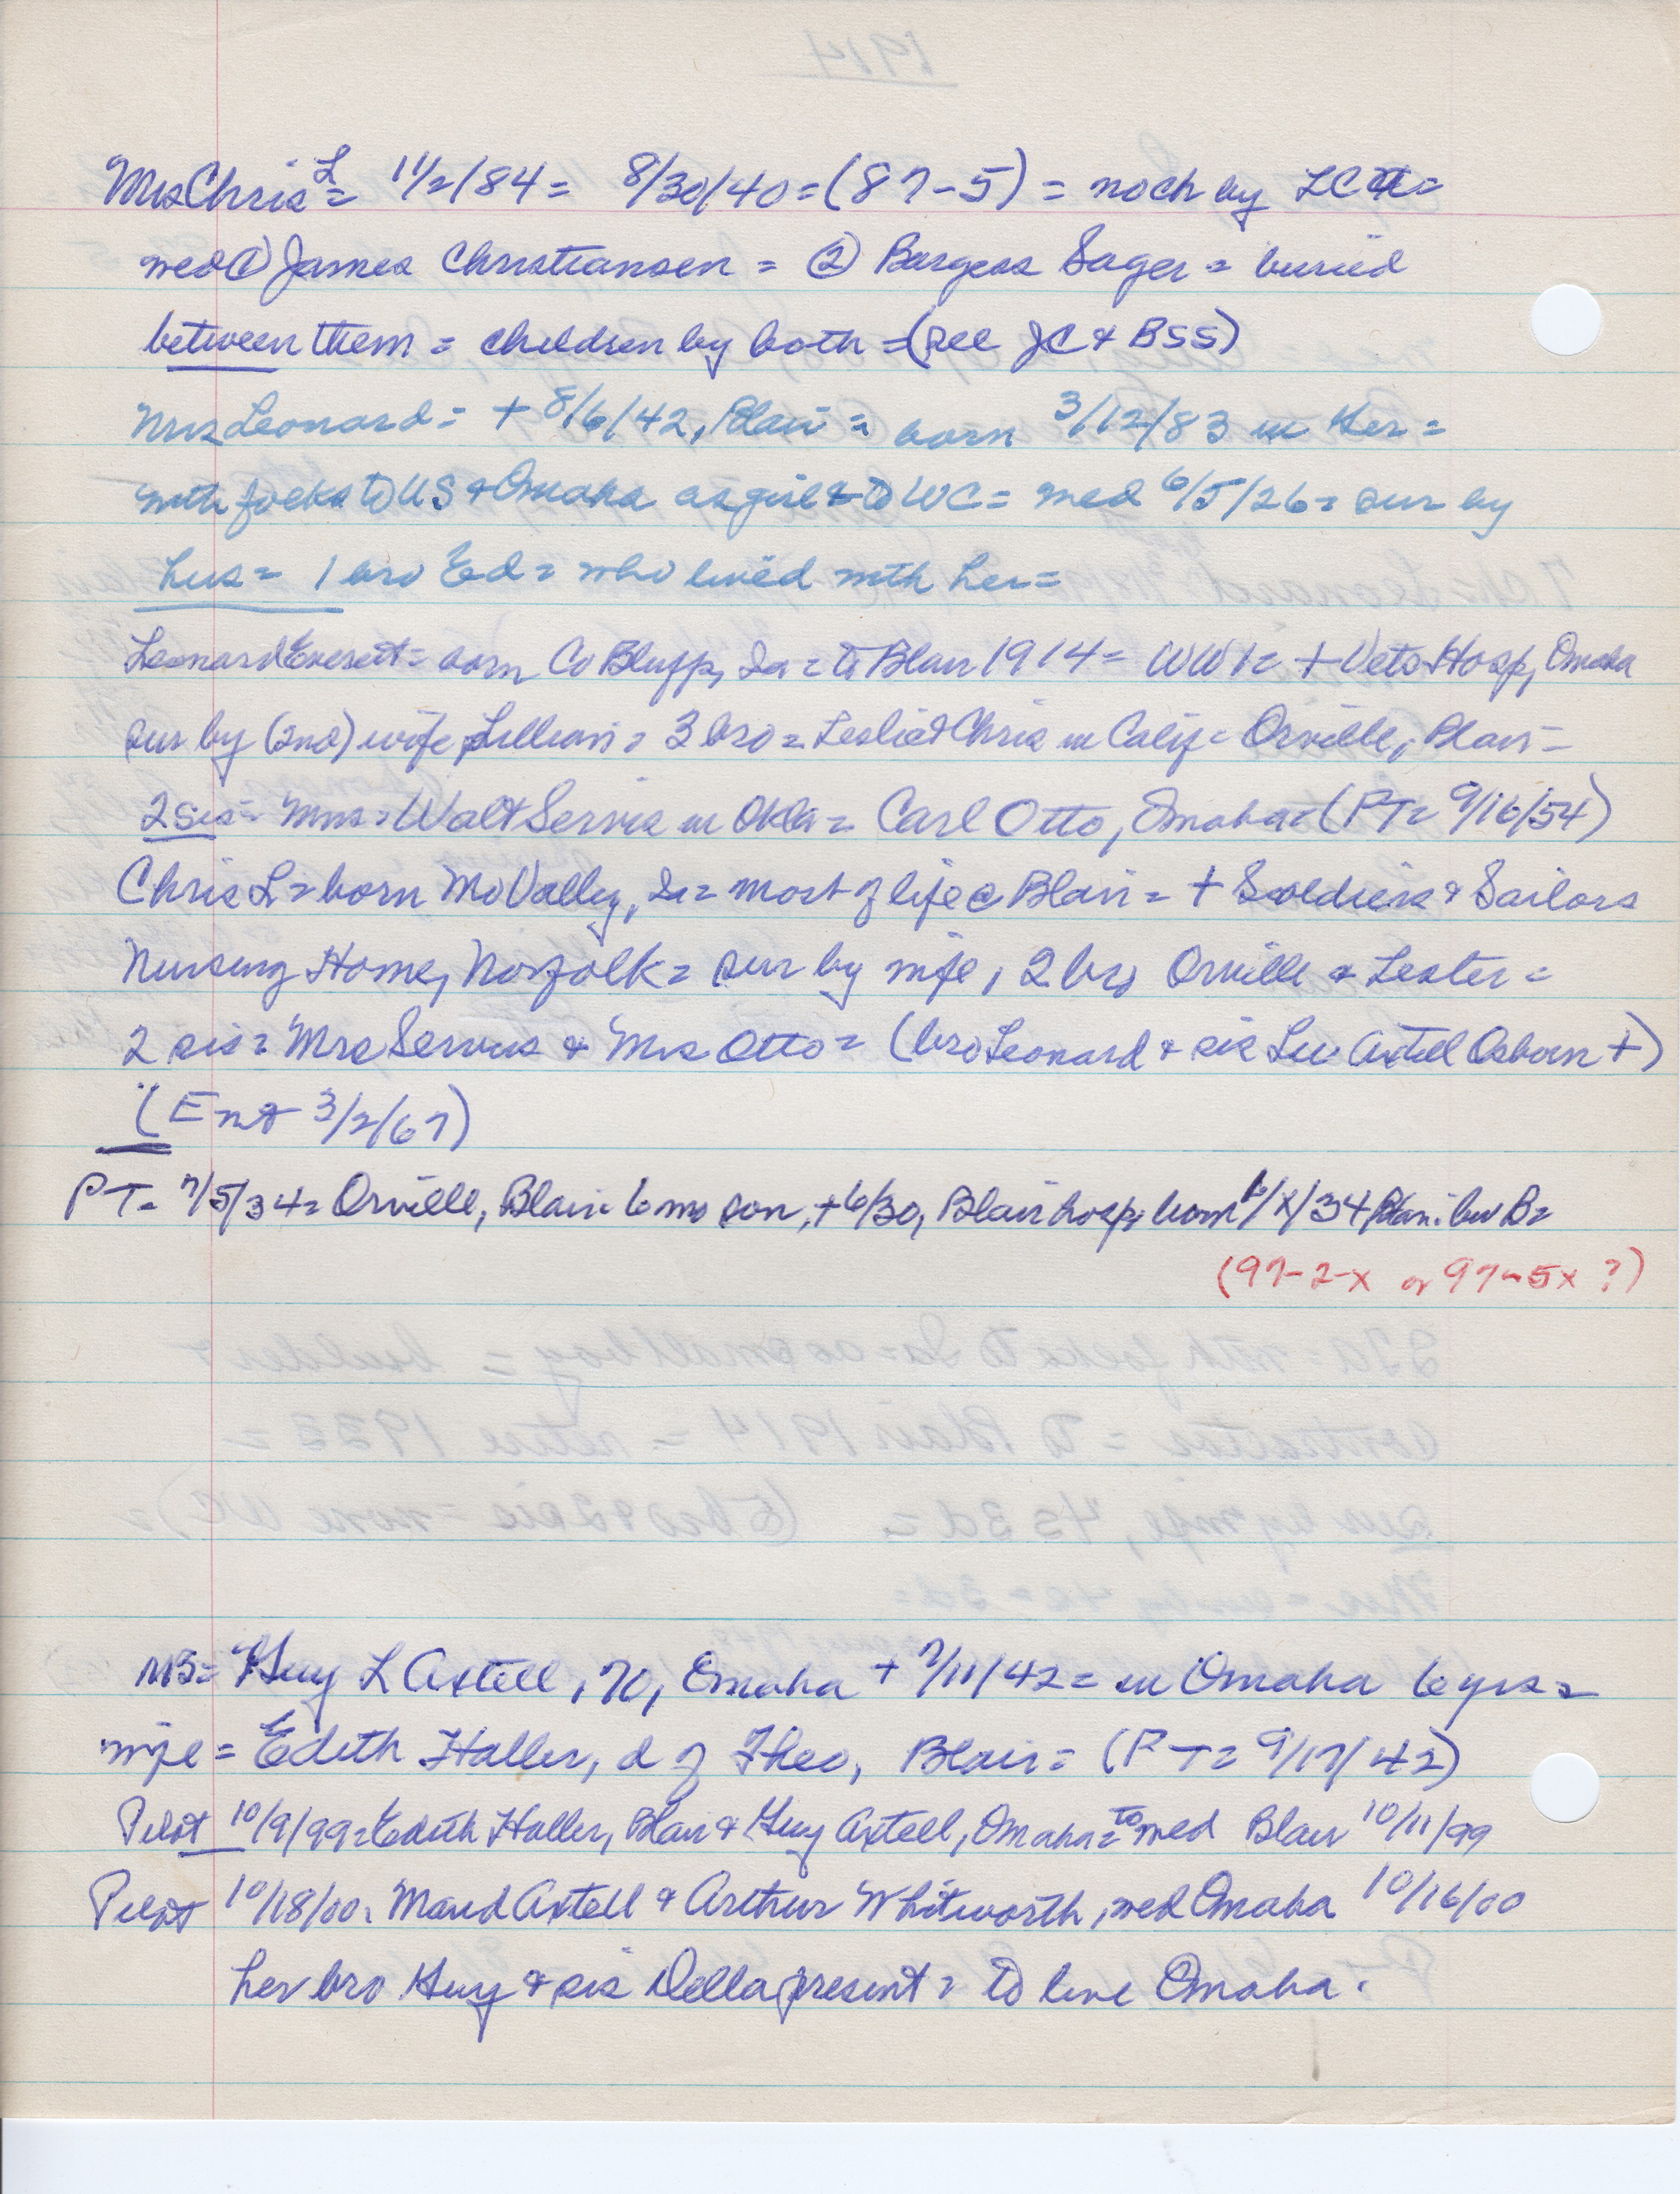 Mrs Chris L = 11/2/84 = 8/30/40 = (87-5) = no ch by LCA =
med ① James Christiansen = ② Burgess Sager = buried
between them = children by both = (see JC & BSS)
Mrs Leonard = + 8/6/42, Blair = born 3/12/83 in Ger =
with folks to US & Omaha as girl & to WC = med 6/5/26 = sur by
hus = 1 bro Ed = who lived with her =
Leonard Everett = born Co Bluffs, Ia = to Blair 1914 = WW1 = + Vets Hosp, Omaha
sur by (2nd) wife, Lillian = 3 bro = Leslie & Chris in Calif = Orville, Blair =
2 sis = Mrs = Walt Servis in Okla = Carl Otto, Omaha = (PT = 9/16/54)
Chris L = born Mo Valley, Ia = most of life @ Blair = + Soldiers & Sailors
Nursing Home, Norfolk = sur by wife, 2 bro Orville & Lester =
2 sis = Mrs Servis & Mrs Otto = (bro Leonard & sis Lu Axtell Osborn +)
(Ent 3/2/67)
PT = 7/5/34 = Orville, Blair = 6 mo son, + 6/30, Blair hosp, born 1/x/34 Blair = bur B =
(97-2-x or 97-5x ?)
NB = Guy L Axtell, 70, Omaha + 9/11/42 = in Omaha 60 yrs =
wife = Edith Haller, d of Theo, Blair = (PT = 9/17/42)
Pilot 10/9/99 = Edith Haller, Blair & Guy Axtell, Omaha = to med Blair 10/11/99
Pilot 10/18/00 = Maud Axtell & Arthur Whitworth, med Omaha 10/16/00
her bro Guy & sis Della present = to live Omaha.